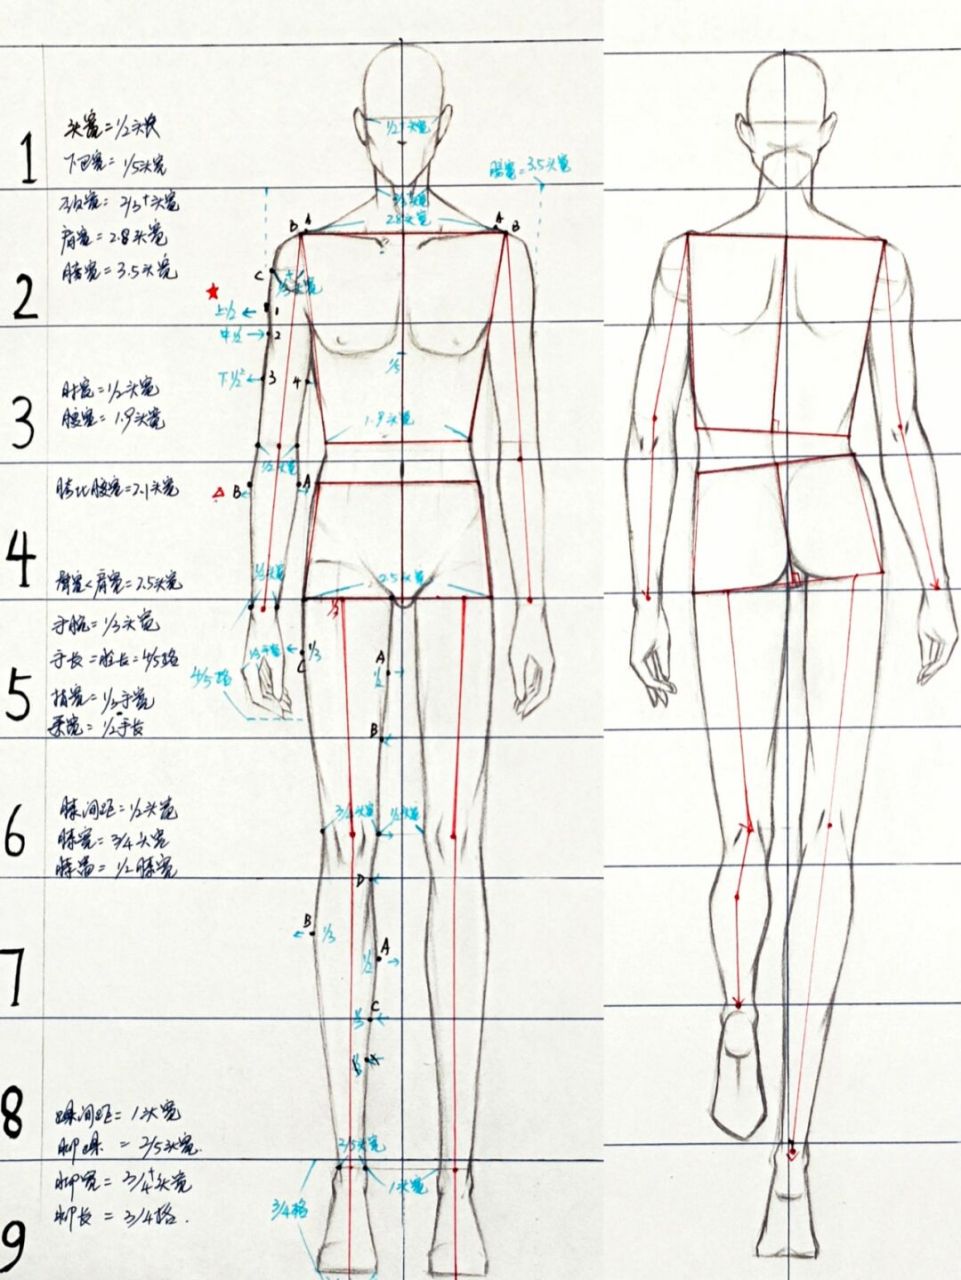 1
头宽=1/2头长
下巴宽=1/5头宽
1/2头宽
膀宽=3.5头宽
2
颈宽=2/3⁺头宽
肩宽=2.8头宽
膀宽=3.5头宽
2.8头宽
B A
A B
C
1/3⁺头宽
上1/2 1
中1/2 2
下1/2⁺ 3 4
1/3
3
肘宽=1/2头宽
腰宽=1.9头宽
1.9头宽
1/2头宽
B A
4
胯比腰宽=2.1头宽
臀宽<肩宽=2.5头宽
1/3头宽
2.5头宽
1/3
5
手腕=1/3头宽
手长=脸长=4/5格
指宽=1/2手宽
掌宽=1/2手长
4/5格
C 1/3
A
1/2
B
6
膝间距=1/2头宽
膝宽=3/4头宽
膝高=1/2膝宽
3/4头宽
1/2头宽
D
7
B
1/3
A
1/2
C
8
踝间距=1头宽
脚踝=2/5头宽.
脚宽=3/4⁺头宽
脚长=3/4格.
2/5头宽
1头宽
3/4格
9